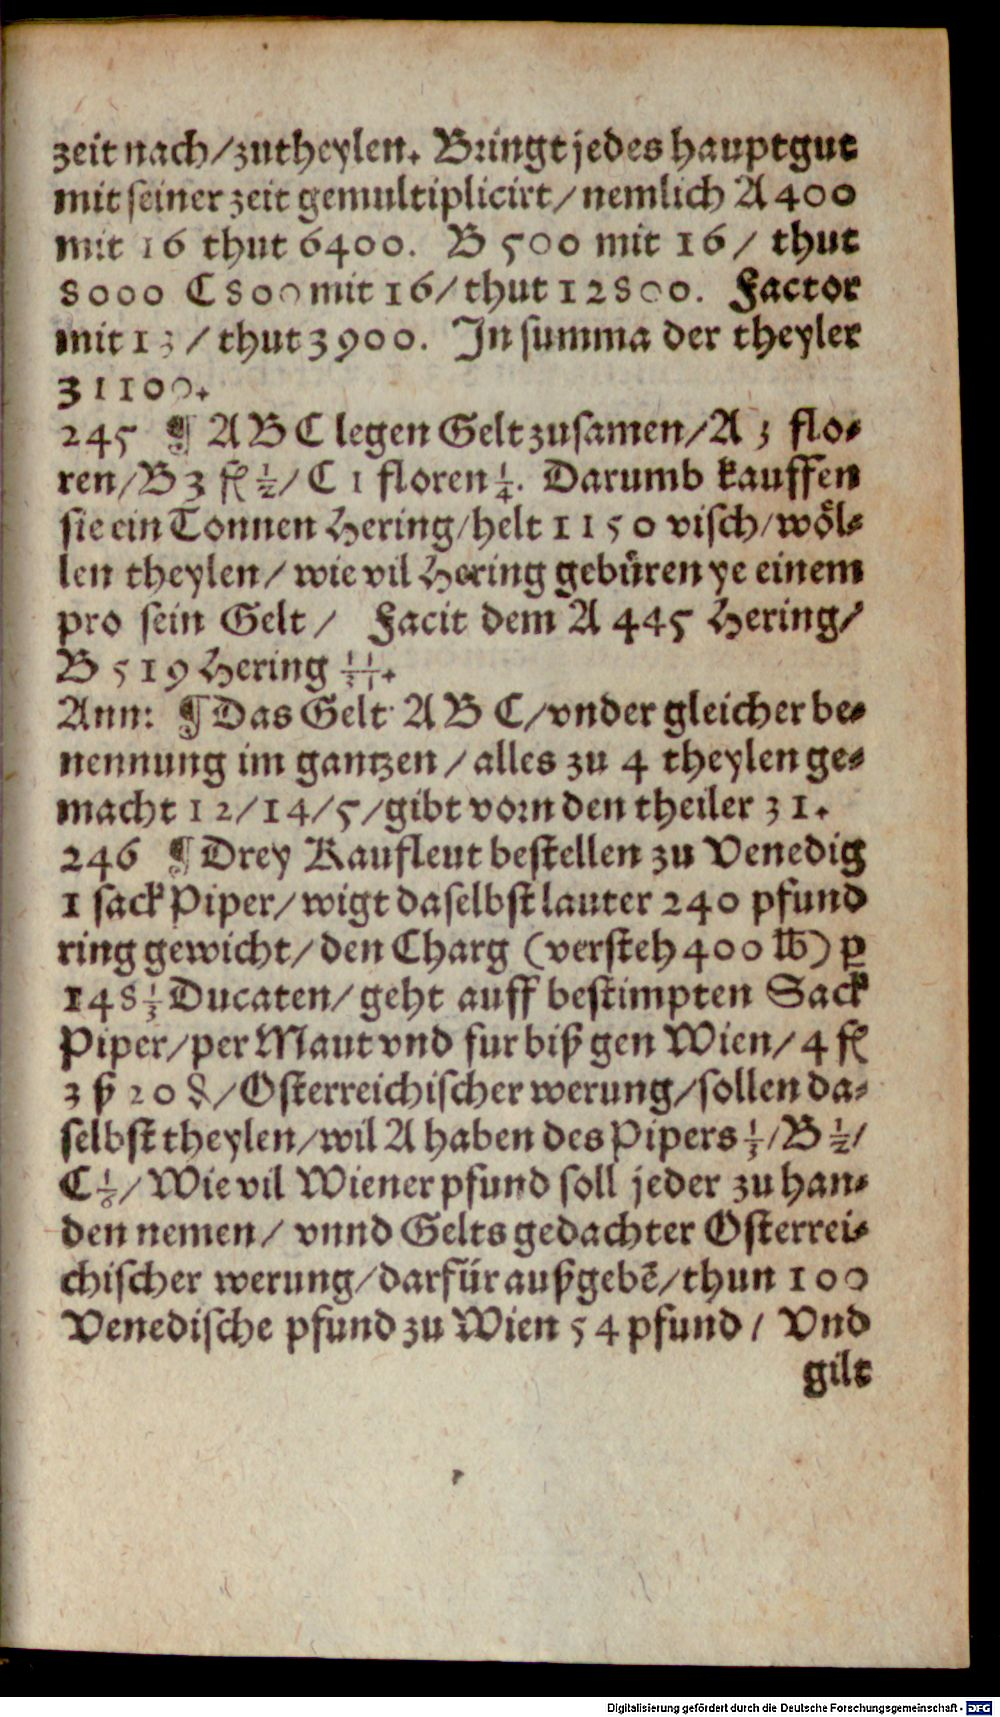 zeit nach/zutheylen. Bringt jedes hauptgut
mit seiner zeit gemultiplicirt/nemlich A 400
mit 16 thut 6400. B 500 mit 16/ thut
8000 C 800 mit 16/thut 12800. Factor
mit 13/thut 3900. In summa der theyler
31100.
245 ¶ A B C legen Gelt zusamen/A 3 flo⸗
ren/B 3 fl ½/C 1 floren ¼. Darumb kauffen
sie ein Tonnen Hering/helt 1150 visch/wöl⸗
len theylen/wie vil Hering gebüren ye einem
pro sein Gelt/ Facit dem A 445 Hering/
B 519 Hering
Ann: ¶ Das Gelt A B C/vnder gleicher be⸗
nennung im gantzen/alles zu 4 theylen ge⸗
macht 12/14/5/gibt vorn den theiler 31.
246 ¶ Drey Kaufleut bestellen zu Venedig
1 sack Piper/wigt daselbst lauter 240 pfund
ring gewicht/den Charg (versteh 400 lb) ꝑ
148 ⅓ Ducaten/geht auff bestimpten Sack
Piper/per Maut vnd fur biß gen Wien/4 fl
3 ß 20 ₰/Osterreichischer werung/sollen da⸗
selbst theylen/wil A haben des Pipers ⅓/B ½/
C ⅙/Wie vil Wiener pfund soll jeder zu han⸗
den nemen/ vnnd Gelts gedachter Osterrei⸗
chischer werung/darfür außgebē/thun 100
Venedische pfund zu Wien 54 pfund/ Vnd
gilt
Digitalisierung gefördert durch die Deutsche Forschungsgemeinschaft - DFG